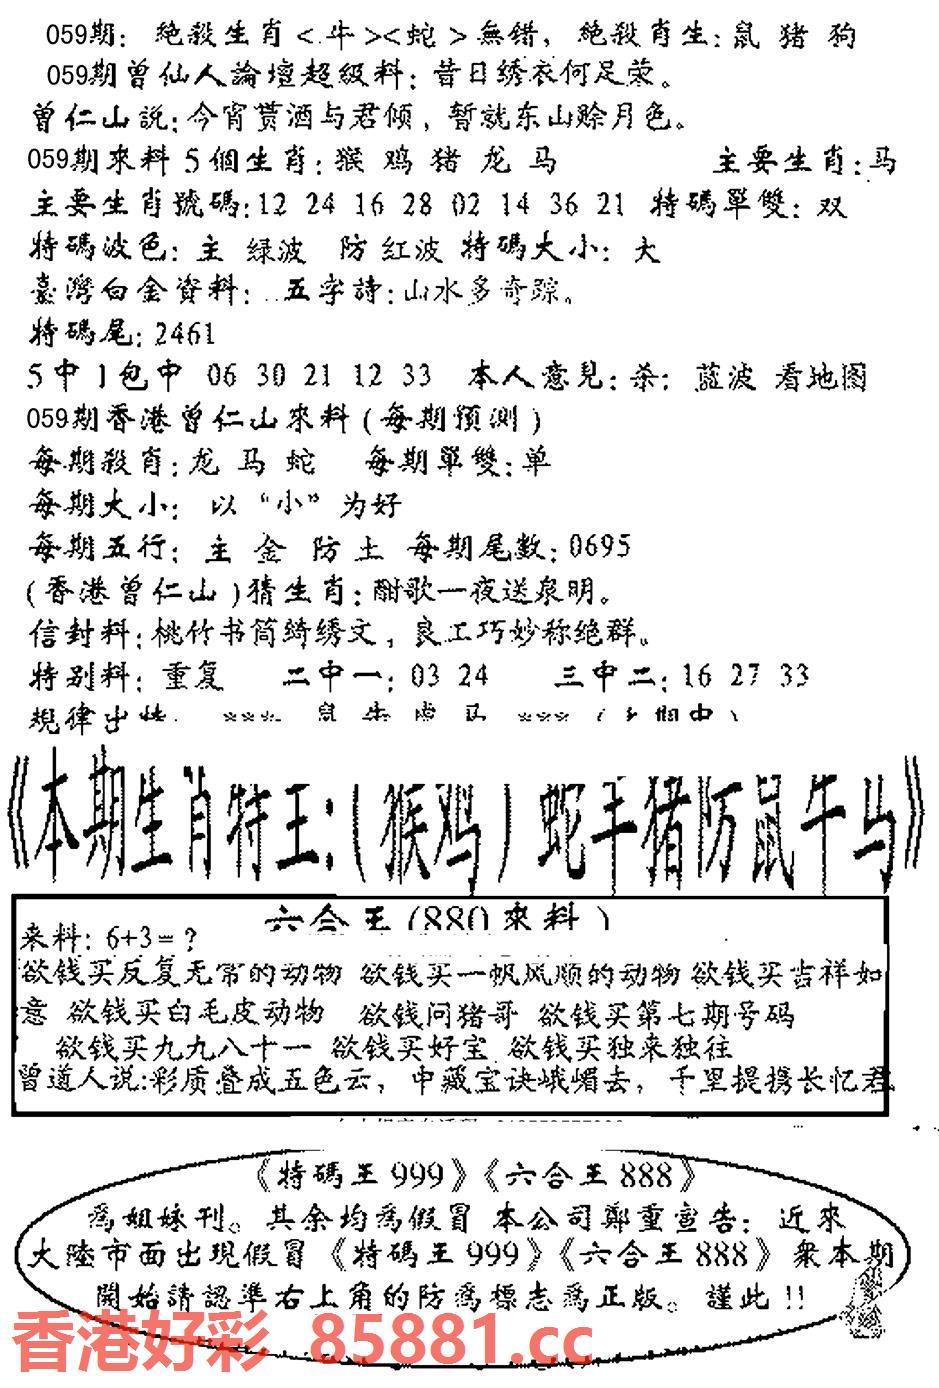 059期: 絶殺生肖<牛><蛇>無错, 絶殺肖生: 鼠 猪 狗
059期曾仙人論壇超級料: 昔日绣衣何足荣。
曾仁山説: 今宵贳酒与君倾, 暂就东山赊月色。
059期來料 5個生肖: 猴 鸡 猪 龙 马 主要生肖: 马
主要生肖號碼: 12 24 16 28 02 14 36 21 特碼單雙: 双
特碼波色: 主 绿波 防 红波 特碼大小: 大
臺灣白金資料: 五字詩: 山水多奇踪。
特碼尾: 2461
5中1包中 06 30 21 12 33 本人意見: 杀: 蓝波 看地图
059期香港曾仁山來料(每期預測)
每期殺肖: 龙 马 蛇 每期單雙: 单
每期大小: 以“小”为好
每期五行: 主 金 防 土 每期尾数: 0695
(香港曾仁山)猜生肖: 酣歌一夜送泉明。
信封料: 桃竹书筒绮绣文, 良工巧妙称绝群。
特别料: 重复 二中一: 03 24 三中二: 16 27 33
規律出特: *** 鼠 牛 虎 马 ***
《本期生肖特王:(猴鸡)蛇羊猪防鼠牛马》
六合王(880來料)
来料: 6+3=?
欲钱买反复无常的动物 欲钱买一帆风顺的动物 欲钱买吉祥如
意 欲钱买白毛皮动物 欲钱问猪哥 欲钱买第七期号码
欲钱买九九八十一 欲钱买好宝 欲钱买独来独往
曾道人说: 彩质叠成五色云, 中藏宝诀峨嵋去, 千里提携长忆君
《特碼王999》《六合王888》
為姐妹刊。其余均為假冒 本公司鄭重宣告: 近來
大陸市面出現假冒《特碼王999》《六合王888》衆本期
開始請認準右上角的防為標志為正版。謹此!!
香港好彩 85881.cc